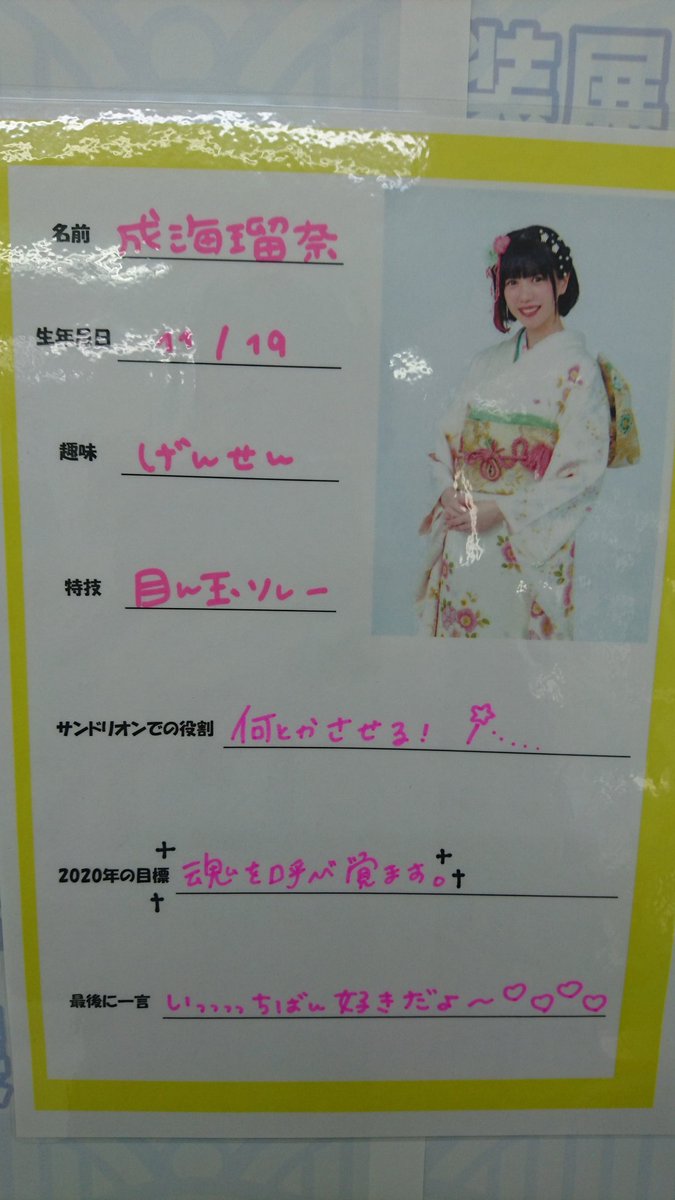 装展
名前 成海瑠奈
生年月日 11/19
趣味 げんせん
特技 目ん玉ソレー
サンドリオンでの役割 何とかさせる!
2020年の目標 魂を呼べ覚ます。
最後に一言 いっっっっちばん好きだよ~♡♡♡♡